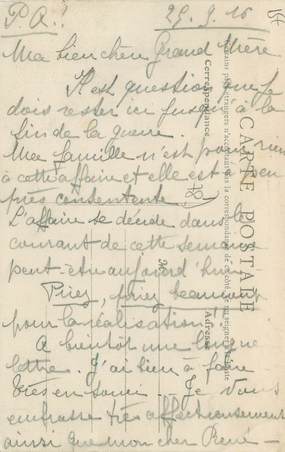 P.Q.!
29.9.16
Ma bien chère Grand Mère
Il est question que je
dois rester ici jusqu'à la
fin de la guerre.
Ma famille n'est pour rien
à cette affaire et elle est à peu
près consentente.
L'affaire se décide dans le
courant de cette semaine
peut-être aujourd'hui
Priez, priez beaucoup
pour la réalisation!
A bientôt une longue
lettre. J'ai bien à faire
très en souci. Je vous
embrasse très affectueusement
ainsi que mon cher René —
CARTE POSTALE
Correspondance
Adresse